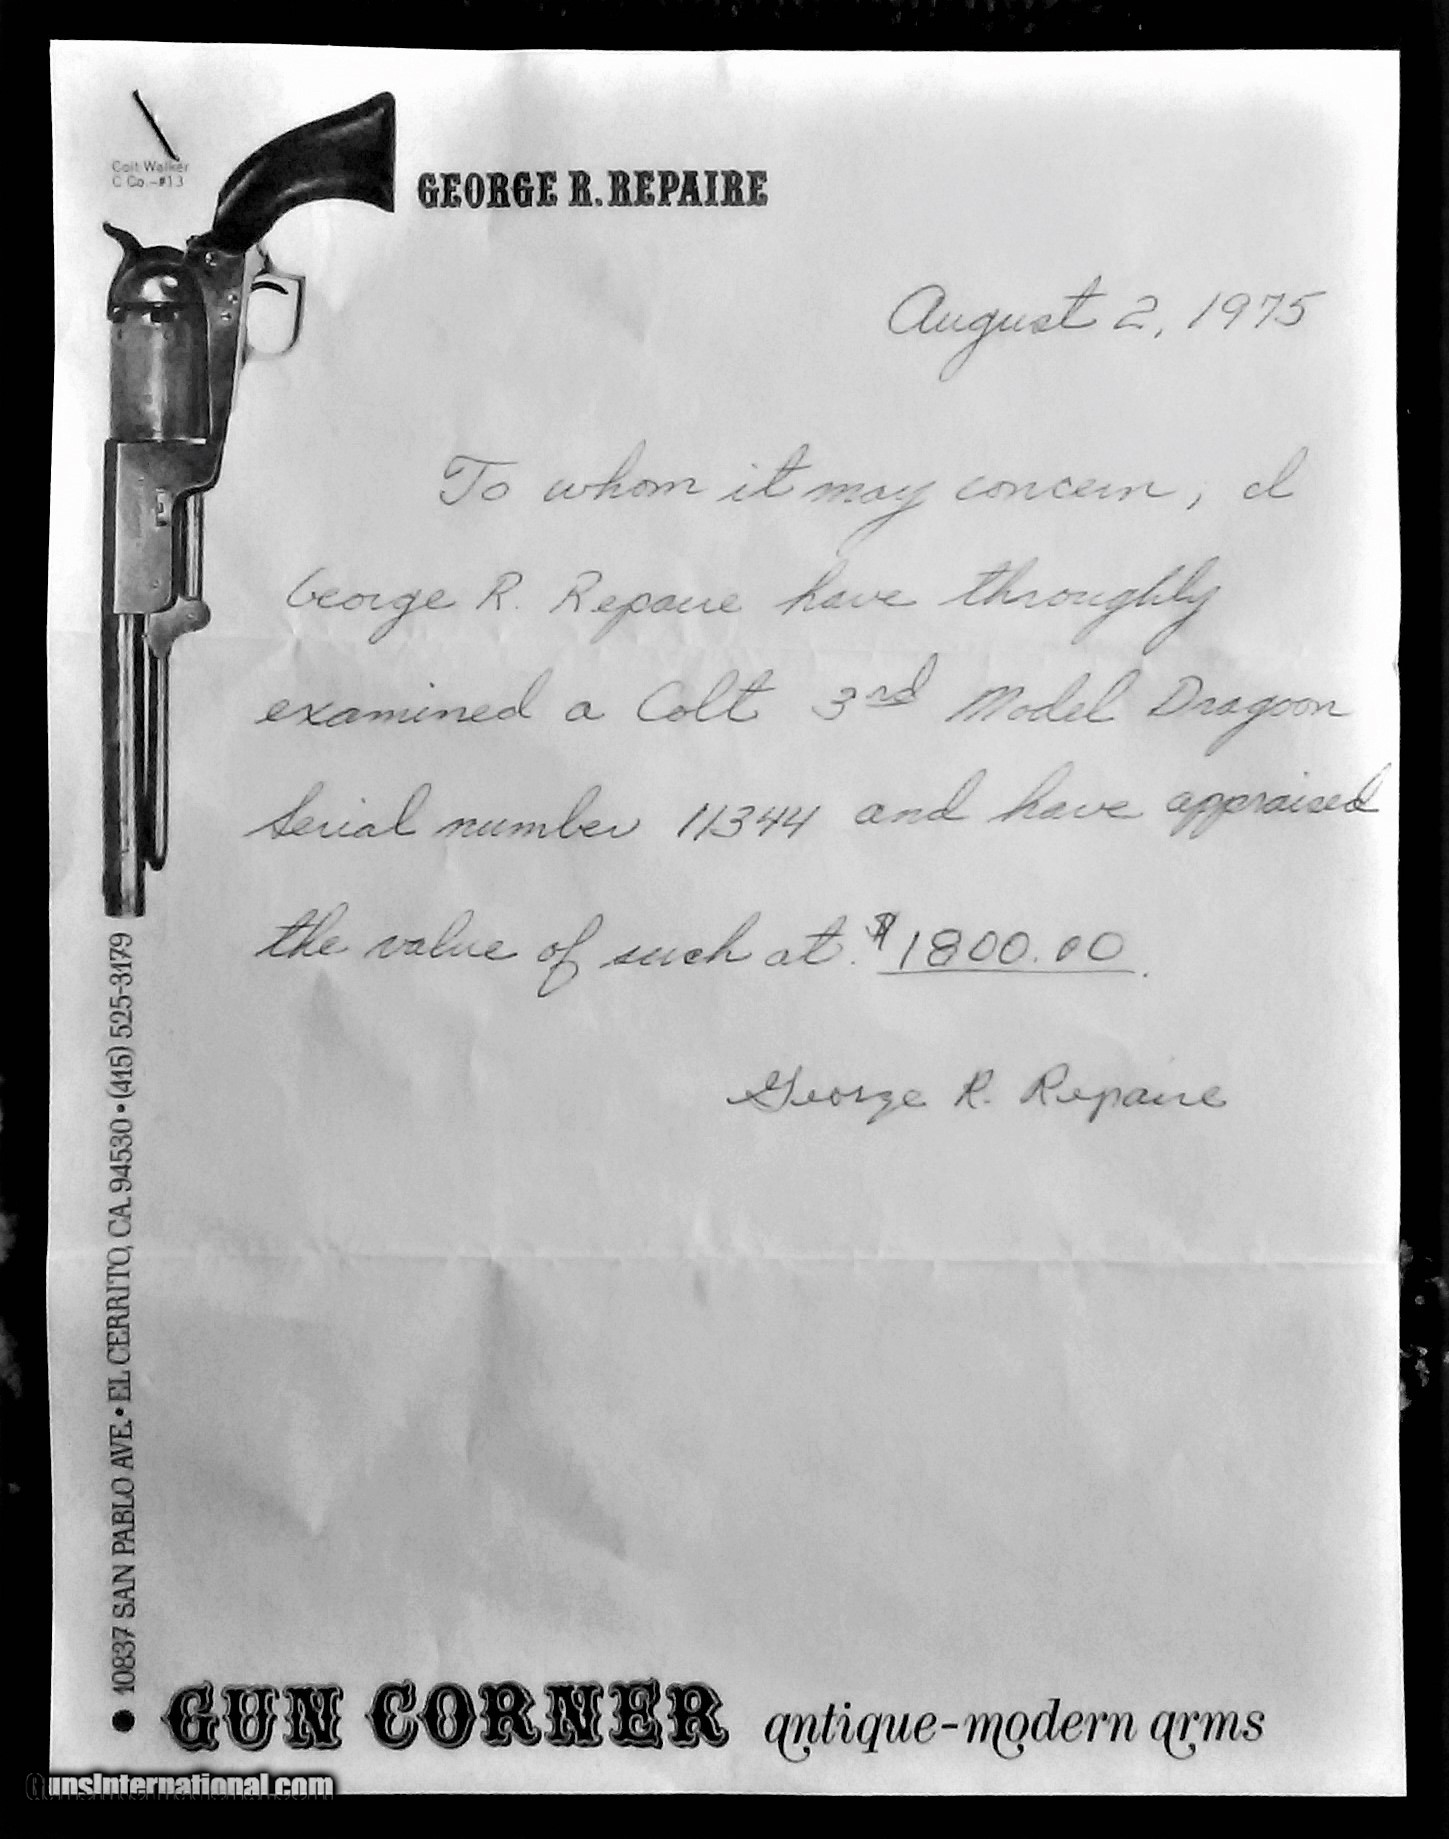 Colt Walker
C Co.-#13
GEORGE R. REPAIRE
August 2, 1975
To whom it may concern, I
George R. Repaire have throughly
examined a Colt 3rd Model Dragoon
Serial number 11344 and have appraised
the value of such at $1800.00.
George R. Repaire
• 10837 SAN PABLO AVE. • EL CERRITO, CA. 94530 • (415) 525-3179
GUN CORNER antique-modern arms
GunsInternational.com